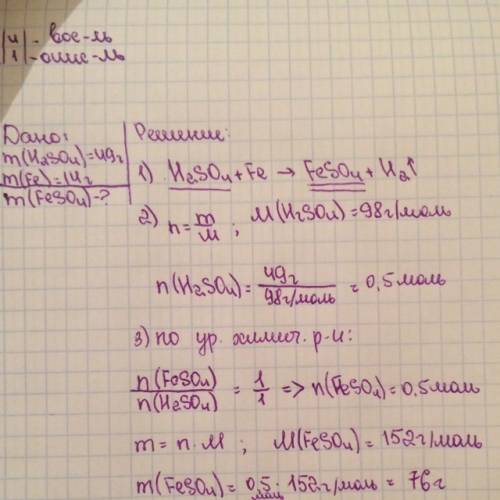 4 | - вос-ль
1 | - окис-ль
Дано:
m(H₂SO₄)=49г
m(Fe)=14г
m(FeSO₄)-?
Решение:
1) H₂SO₄ + Fe → FeSO₄ + H₂↑
2) n = m/M ; M(H₂SO₄)=98г/моль
n(H₂SO₄) = 49г / 98г/моль = 0,5 моль
3) по ур. химич. р-и:
n(FeSO₄) / n(H₂SO₄) = 1/1 => n(FeSO₄)=0,5 моль
m = n · M ; M(FeSO₄) = 152г/моль
m(FeSO₄) = 0,5 моль · 152г/моль = 76г